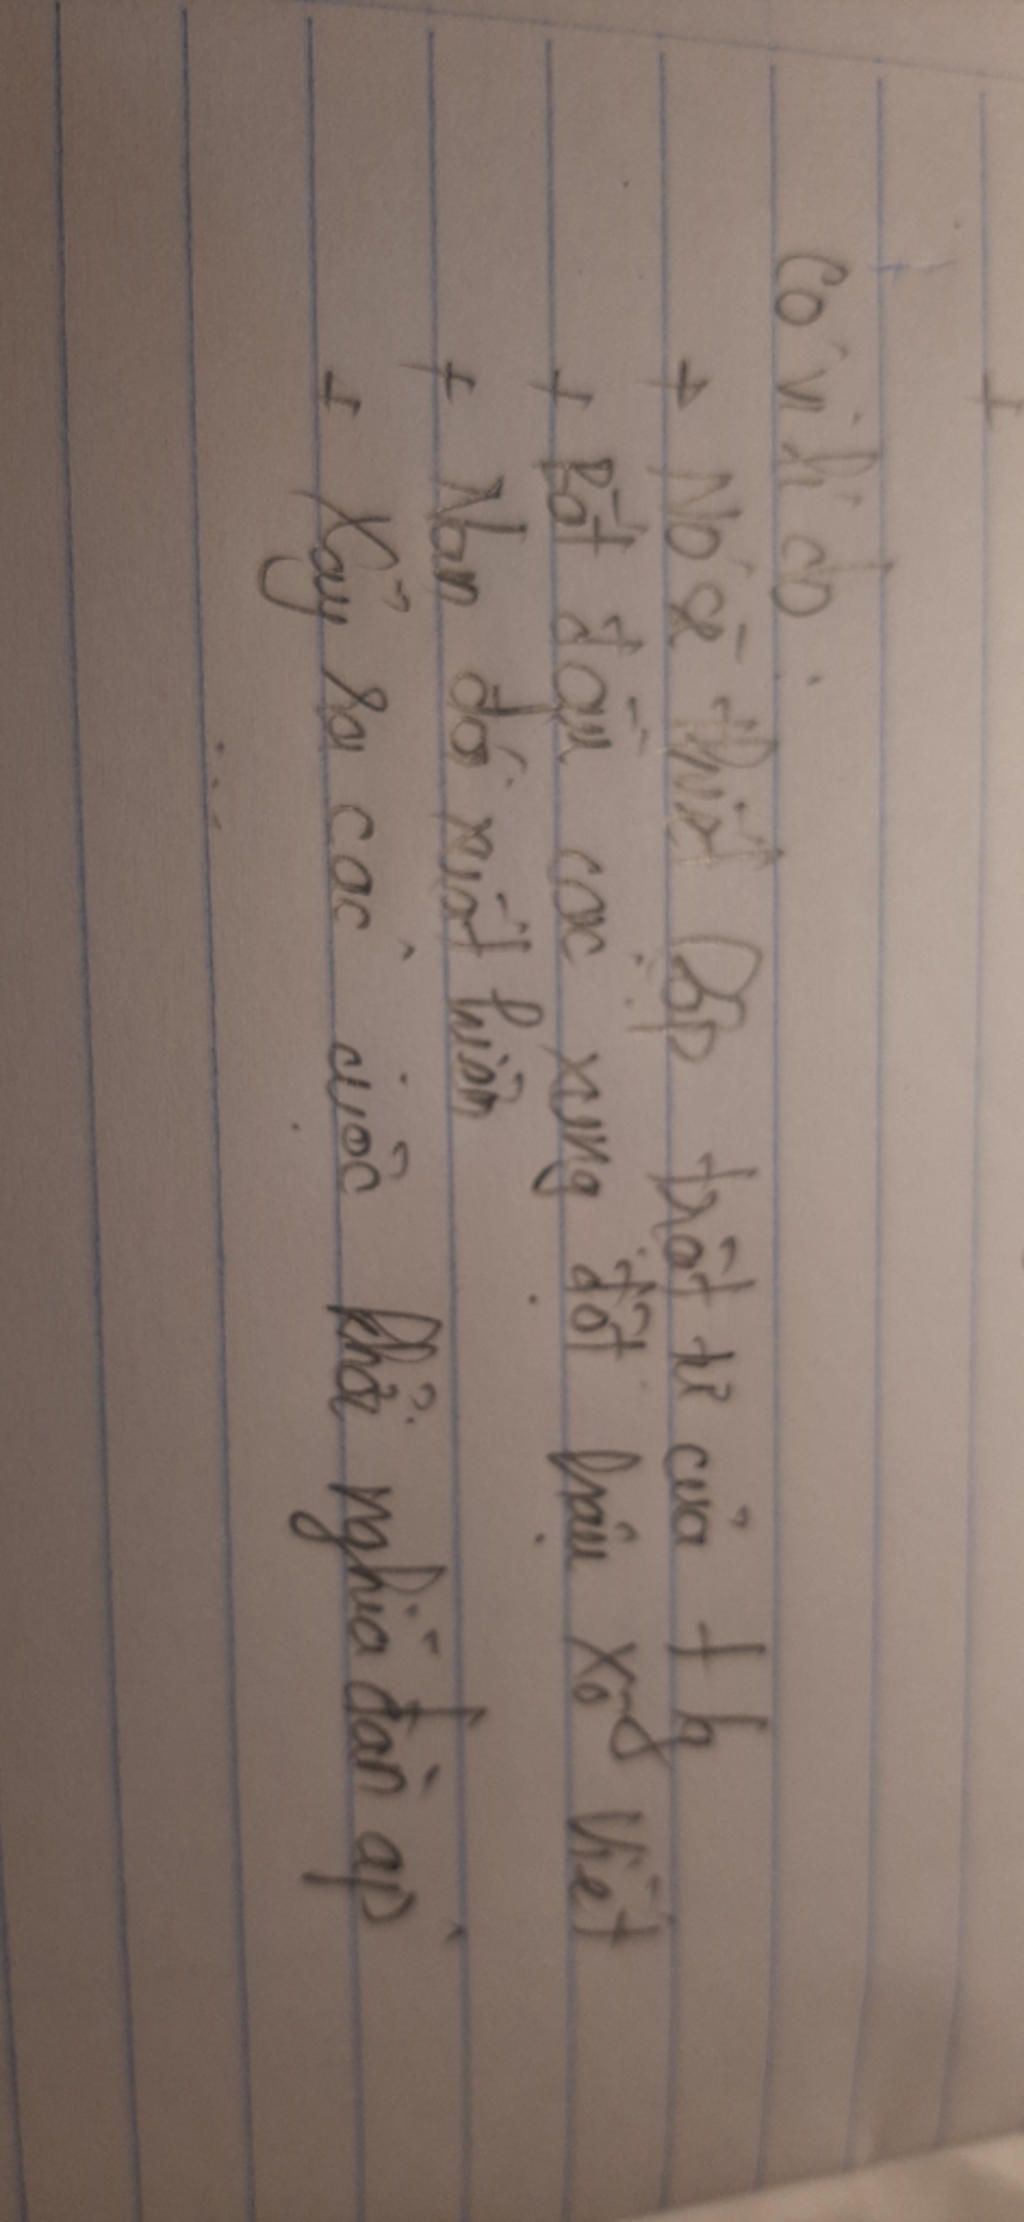 Có ví dò:
+ Nó sẽ thiết lập trật tự của t g
+ Bắt đầu các xung đột hậu xô Viết
+ Nạn đói xuất hiện
+ Xảy ra các cuộc khởi nghĩa đàn áp
+